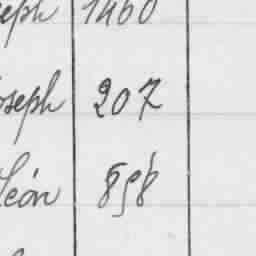 seph 1460
oseph 207
Léon 858